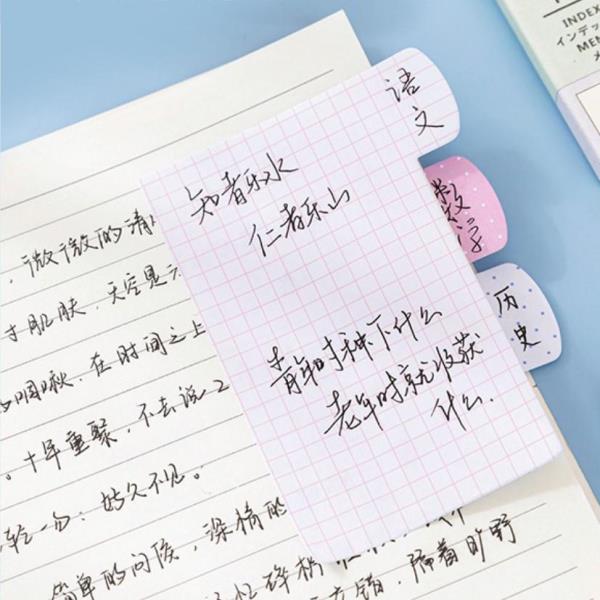 语文
知者乐水
仁者乐山
数学
历史
青年时种下什么
老年时就收获
什么.
,微微的清
寸肌肤.天空是
啁啾.在时间之上
。十年重聚,不去说
轻一句:好久不见。
简单的问候,深情的
碎梢
错.隔着旷野
INDEX
インデッ
MEM